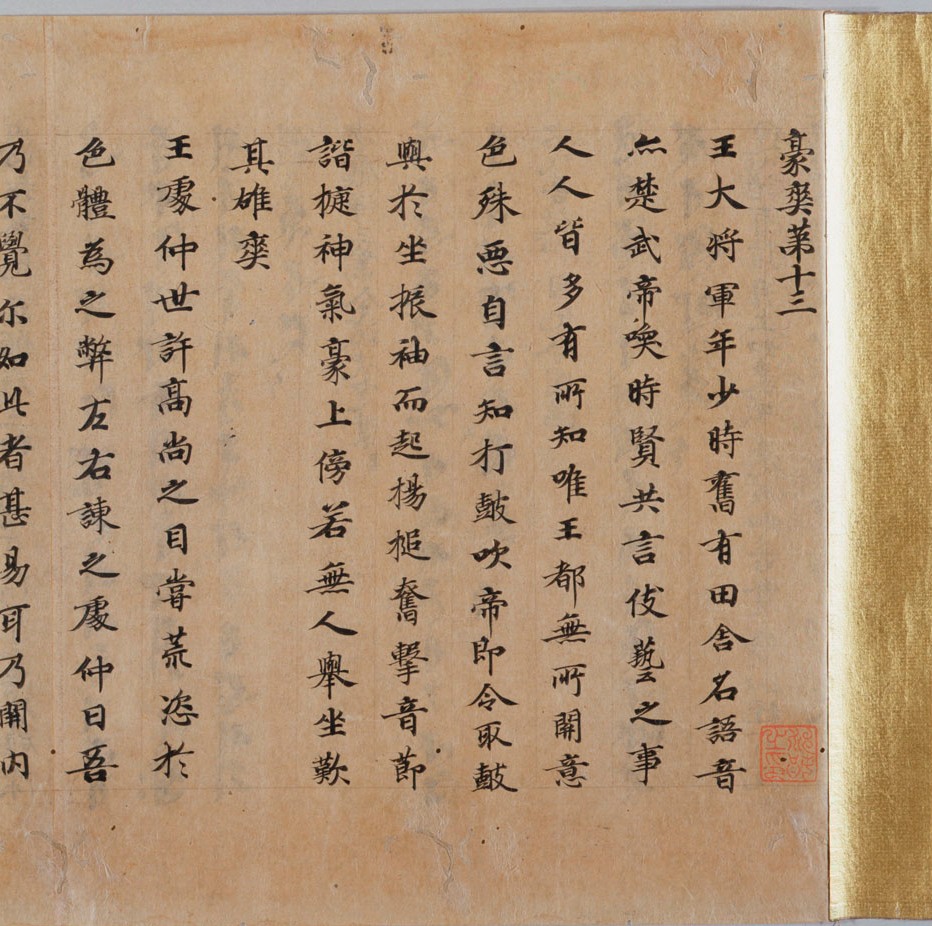 豪爽第十三
王大將軍年少時舊有田舍名語音
亦楚武帝喚時賢共言伎藝之事
人人皆多有所知唯王都無所開意
色殊惡自言知打鼓吹帝即令取鼓
與於坐振袖而起揚槌奮擊音節
諧捷神氣豪上傍若無人舉坐歎
其雄爽
王處仲世許高尚之目嘗荒恣於
色體為之弊左右諫之處仲曰吾
乃不覺尓如此者甚易耳乃開內